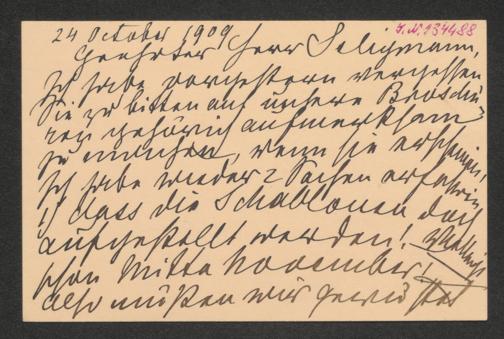 24 October 1909
J.N. 134488
Geehrter Herr Seligmann,
Ich habe vorgestern vergessen
Sie zu bitten auf unsere Broschü-
ren gehörich aufmerksam
zu machen, wenn sie erscheinen!
Ich habe wieder 2 Sachen erfahren
1) dass die Schablonen doch
aufgestellt werden!
schon Mitte November!
also müßen wir gerüstet